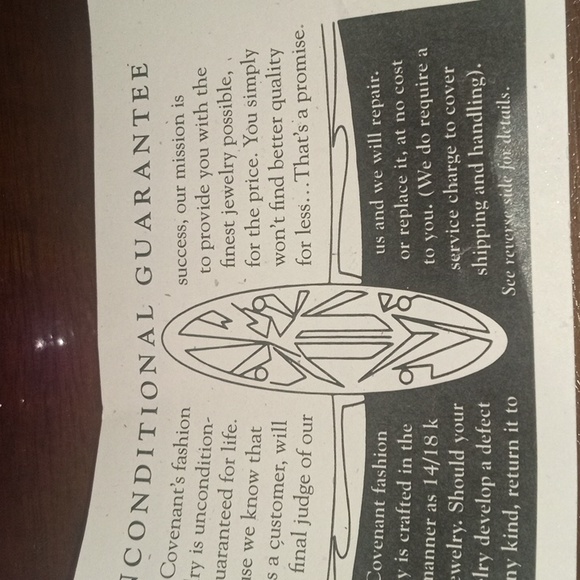 NCONDITIONAL GUARANTEE
Covenant's fashion
ry is uncondition-
uaranteed for life.
use we know that
s a customer, will
final judge of our
success, our mission is
to provide you with the
finest jewelry possible,
for the price. You simply
won't find better quality
for less... That's a promise.
Covenant fashion
y is crafted in the
anner as 14/18 k
welry. Should your
lry develop a defect
ny kind, return it to
us and we will repair.
or replace it, at no cost
to you. (We do require a
service charge to cover
shipping and handling).
See reverse side for details.